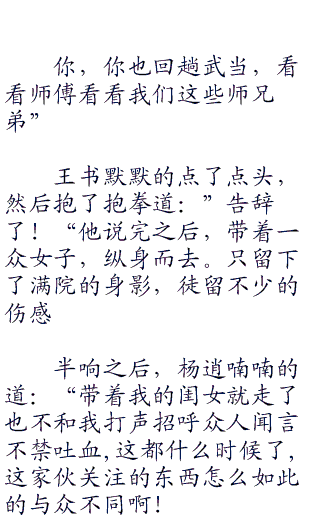 你，你也回趟武当，看
看师傅看看我们这些师兄
弟”
王书默默的点了点头，
然后抱了抱拳道：”告辞
了！“他说完之后，带着一
众女子，纵身而去。只留下
了满院的身影，徒留不少的
伤感
半响之后，杨逍喃喃的
道：“带着我的闺女就走了
也不和我打声招呼众人闻言
不禁吐血,这都什么时候了,
这家伙关注的东西怎么如此
的与众不同啊!